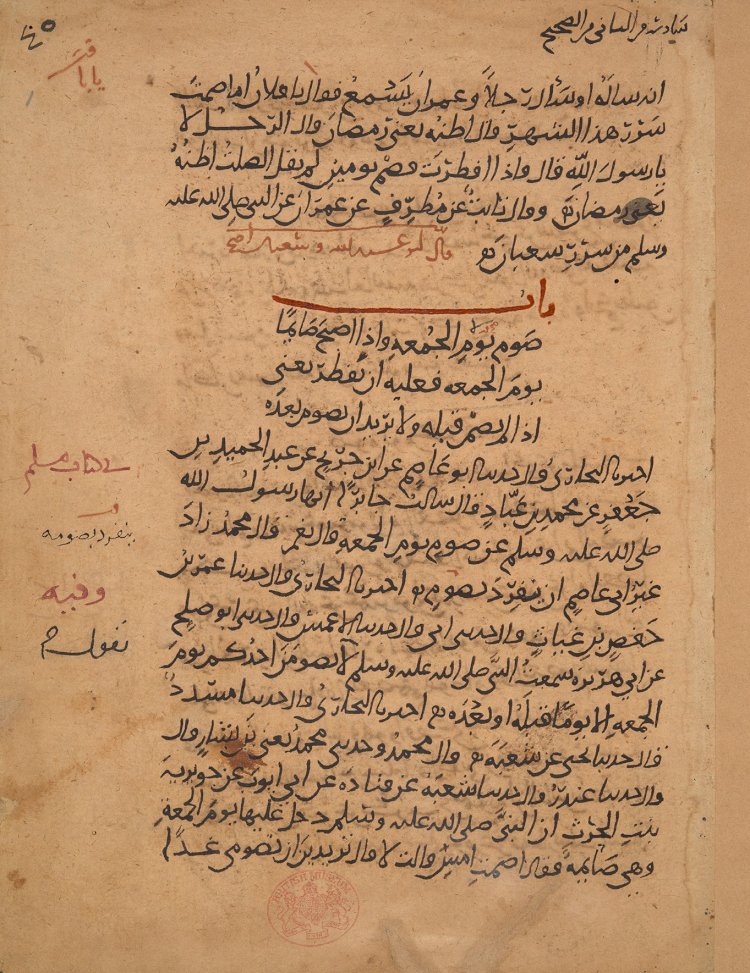 سادسه من الثاني من الصحيح
انه ساله او سال رجلا وعمران يسمع فقال يا فلان اما صمت
سرر هذا الشهر قال اظنه يعني رمضان قال الرجل لا
يا رسول الله قال واذا افطرت فصم يومين لم يقل الصلت اظنه
يعني رمضان وقال ثابت عن مطرف عن عمران عن النبي صلى الله عليه
وسلم من سرر شعبان
قال ابو عبد الله وشعبان اصح
باب
صوم يوم الجمعة واذا اصبح صايما
يوم الجمعه فعليه ان يفطر يعني
اذا لم يصم قبله ولا يريد ان يصوم بعده
اخبرنا البخاري قال حدثنا ابو عاصم عن ابن جريج عن عبد الحميد بن
جعفر عن محمد بن عباد قال سالت جابرا انها رسول الله
صلى الله عليه وسلم عن صوم يوم الجمعة قال نعم قال محمد زاد
غير ابي عاصم ان ينفرد بصوم اخبرنا البخاري قال حدثنا عمر بن
حفص بن غياث قال حدثني ابي قال حدثنا الاعمش قال حدثنا ابو صلح
عن ابي هريرة سمعت النبي صلى الله عليه وسلم لا يصومن احدكم يوم
الجمعه الا يوما قبله او بعده اخبرنا البخاري قال حدثنا مسدد
قال حدثنا يحيى عن شعبة قال محمد وحدثني محمد يعني بن بشار قال
قال حدثنا غندر قال حدثنا شعبة عن قتادة عن ابي ايوب عن جويرية
بنت الحرث ان النبي صلى الله عليه وسلم دخل عليها يوم الجمعه
وهي صايمة فقال اصمت امس قالت لا قال تريدين ان تصومي غدا
في كتاب مسلم
ينفرد بصومه
وفيه
يقول